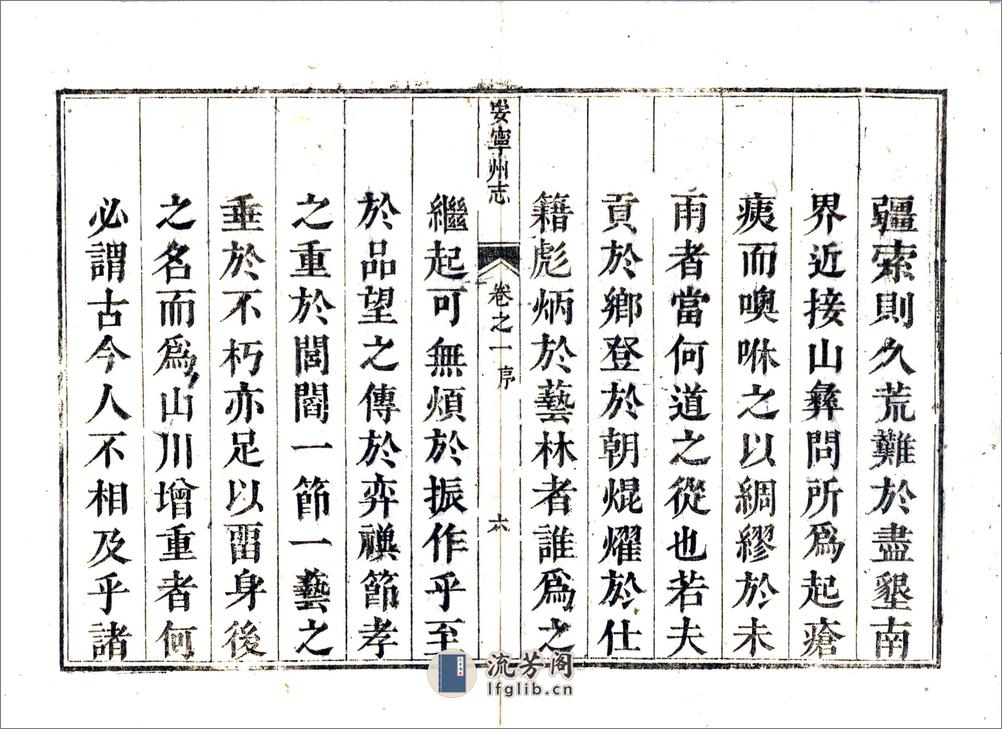 疆索則久荒難於盡墾南
界近接山彝問所爲起瘡
痍而噢咻之以綢繆於未
雨者當何道之從也若夫
貢於鄉登於朝焜燿於仕
籍彪炳於藝林者誰爲之
安寧州志 卷之一 序 六
繼起可無煩於振作乎至
於品望之傳於弈禩節孝
之重於閭閻一節一藝之
垂於不朽亦足以畱身後
之名而爲山川增重者何
必謂古今人不相及乎諸
流芳阁
lfglib.cn